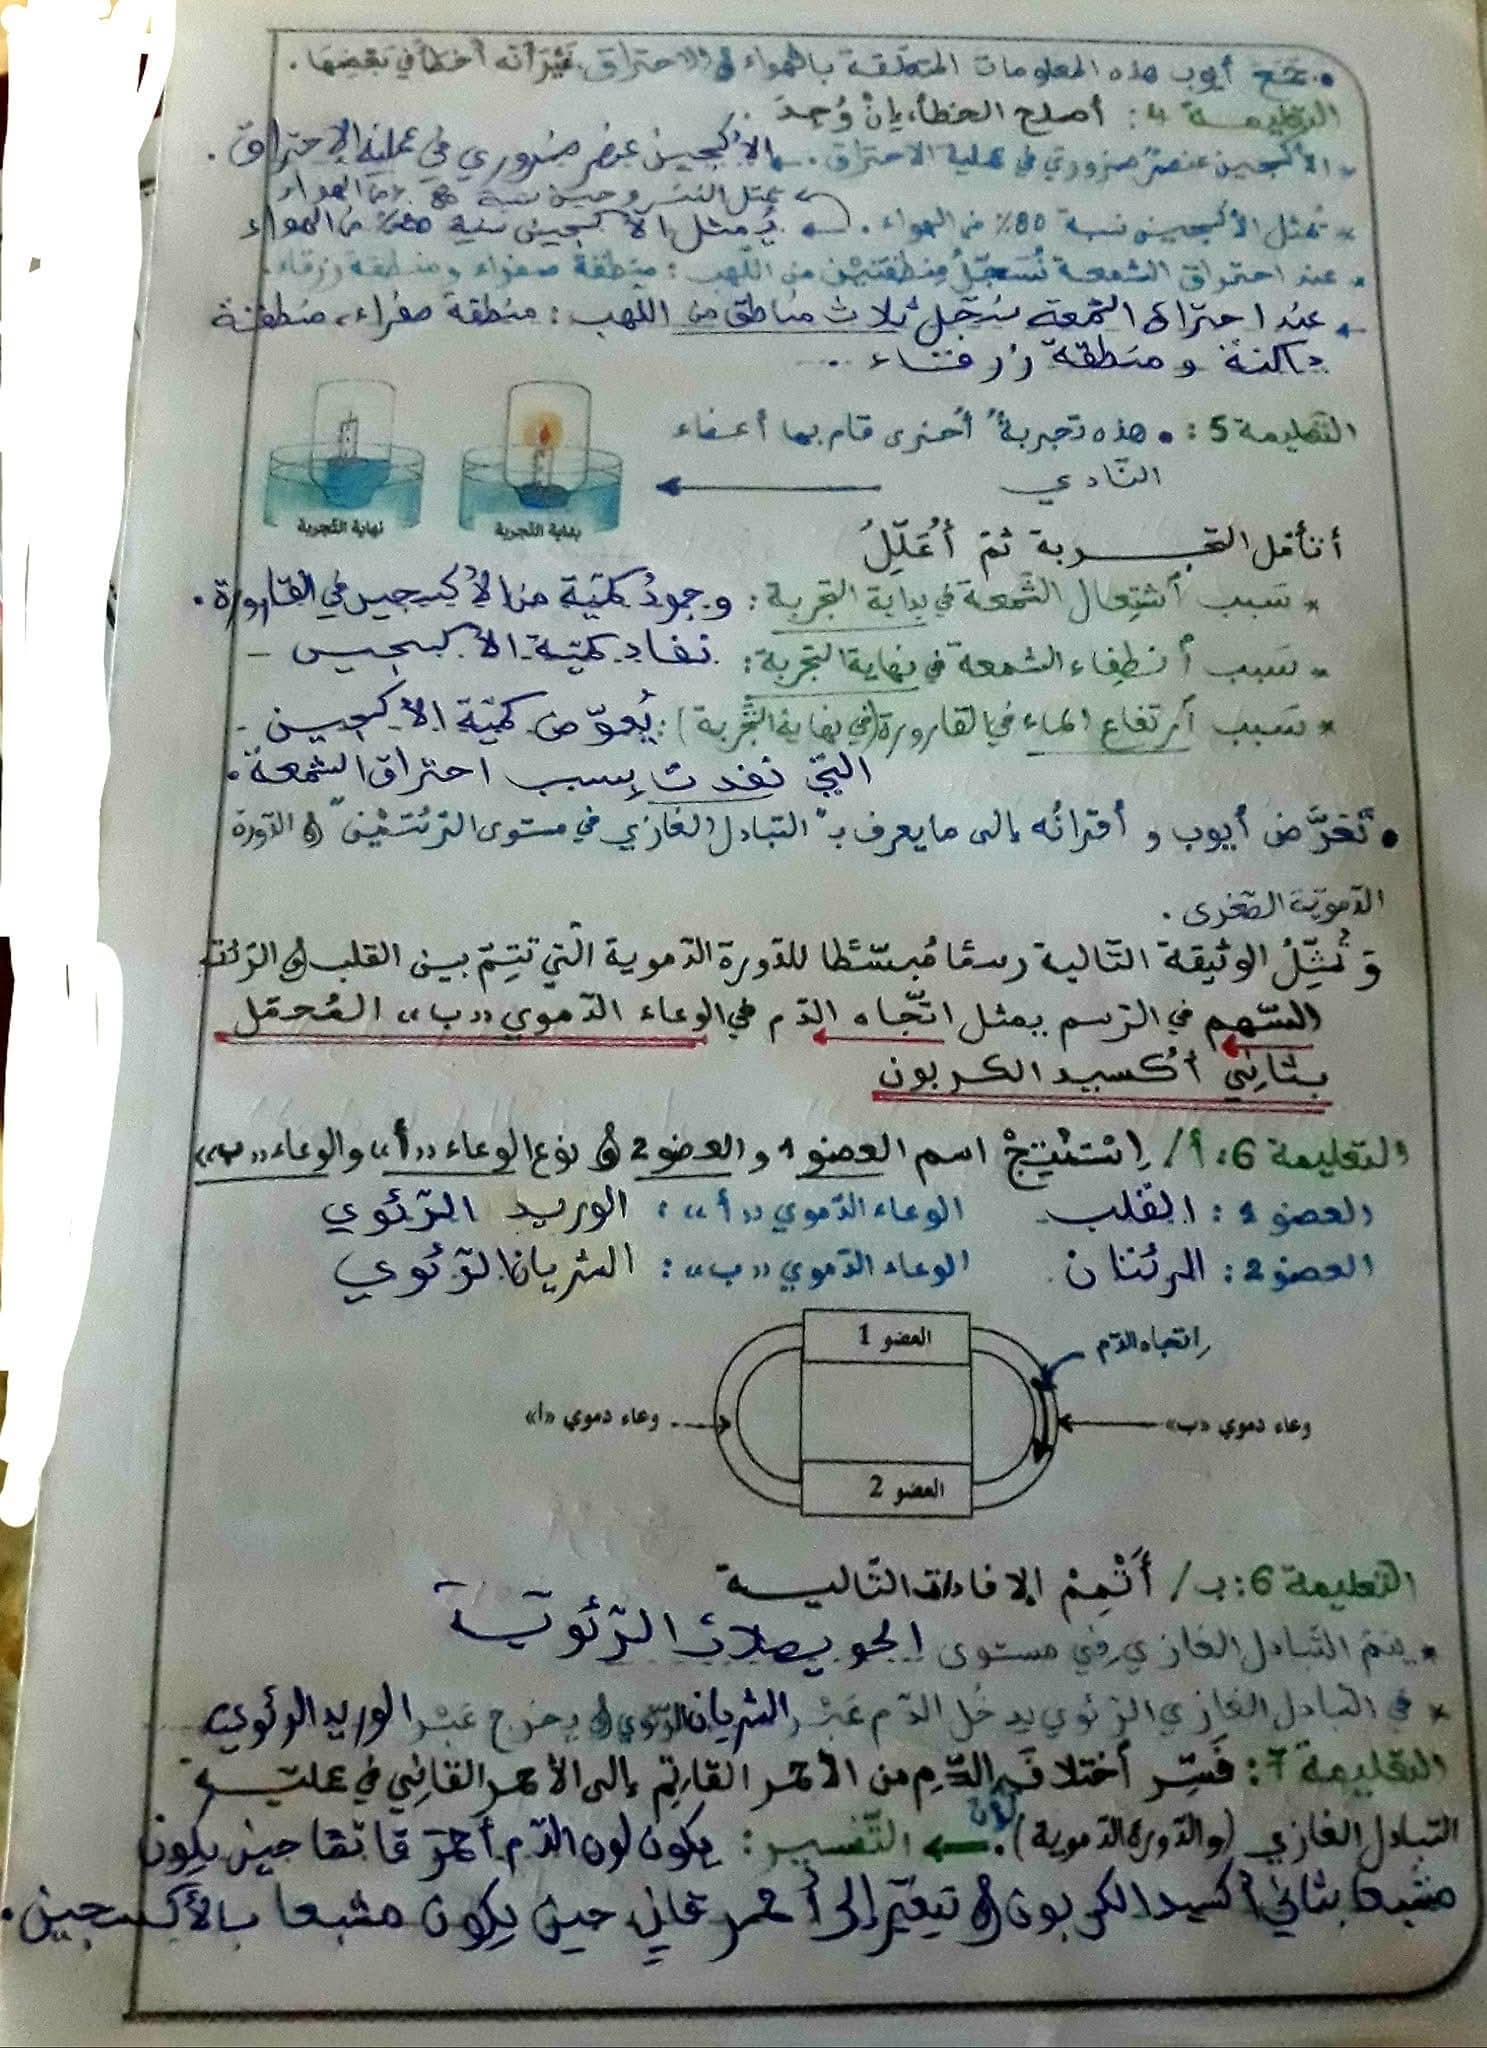 • جمع أيوب هذه المعلومات المتعلقة بالهواء و الاحتراق غير أنه أخطأ في بعضها.
التعليمة 4: أصلح الخطأ، إن وُجد
* الأكسجين عنصر ضروري في عملية الاحتراق. الأكسجين عنصر ضروري في عملية الاحتراق.
يمثل النيتروجين نسبة من الهواء
* تمثل الأكسجين نسبة 80٪ من الهواء. يُمثل الأكسجين نسبة من الهواء
* عند احتراق الشمعة نُسجّل منطقتين من اللهب: منطقة صفراء ومنطقة زرقاء.
عند احتراق الشمعة نسجّل ثلاث مناطق من اللهب: منطقة صفراء، منطقة
داكنة و منطقة زرقاء ....
التعليمة 5: • هذه تجربةٌ أخرى قام بها أعضاء
النّادي
بداية التجربة
نهاية التجربة
أتأمل التجربة ثمّ أُعَلّلُ
* سبب اشتعال الشمعة في بداية التجربة: وجودُ كمّية من الأكسجين في القارورة.
* سبب انطفاء الشمعة في نهاية التجربة: نفاد كمّية الأكسجين -
* سبب ارتفاع الماء في القارورة (في نهاية التّجربة): يُعوّض كمّية الأكسجين -
التي نفدت بسبب احتراق الشمعة.
• تعرّض أيوب و أقرانُه إلى ما يعرف بـ "التبادل الغازي في مستوى الرّئتين" و الدّورة
الدّمويّة الصّغرى.
وَ تُمثِّلُ الوثيقة التّالية رسمًا مُبسّطا للدّورة الدّموية الّتي تتِمّ بين القلب و الرّئة
السّهم في الرّسم يمثل اتّجاه الدّم في الوعاء الدّموي «ب» المُحمّل
بثاني أكسيد الكربون
التعليمة 6: أ/ اِسْتَنْتِجْ اسم العضو 1 و العضو 2 و نوع الوعاء «أ» والوعاء «ب»
العضو 1: القلب الوعاء الدّموي «أ»: الوريد الرّئوي
العضو 2: الرئتان الوعاء الدّموي «ب»: الشريان الرّئوي
العضو 1
اِتجاه الدّم
وعاء دموي «ا»
وعاء دموي «ب»
العضو 2
التعليمة 6: ب/ أَتْمِمْ الإفادات التّالية
* يتمّ التّبادل الغازي في مستوى الحويصلات الرّئويّة
* في التبادل الغازي الرّئوي يدخُل الدّم عَبْر الشريان الرّئوي و يخرج عَبْر الوريد الرئوي
التعليمة 7: فَسِّر اختلاف لون الدّم من الأحمر القاتم إلى الأحمر القاني في عمليّة
التبادل الغازي (والدّورة الدّموية). التّفسير: يكون لون الدّم أحمرَ قاتمًا حين يكون
مشبعا بثاني أكسيد الكربون و يتغيّر إلى أحمر قاني حين يكون مشبعا بالأكسجين.